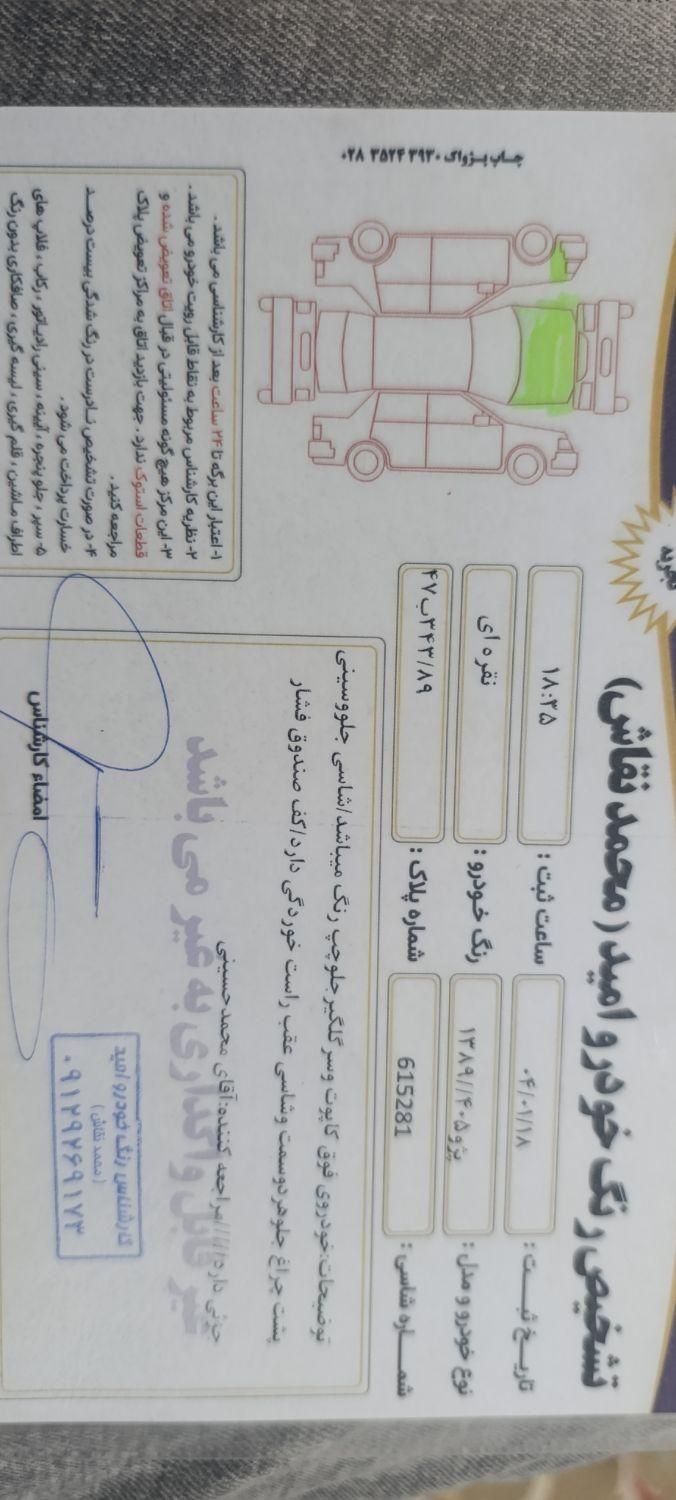 تجربه
تشخیص رنگ خودرو امید (محمد نقاش)
تاریخ ثبت : ۰۴/۰۱/۱۸
ساعت ثبت : ۱۸:۳۵
نوع خودرو و مدل : پژو۴۰۵//۱۳۸۹
رنگ خودرو : نقره ای
شماره شاسی : 615281
شماره پلاک : ۴۷ب۳۴۳/۸۹
توضیحات:خودروی فوق کاپوت وسر گلگیر جلو چپ رنگ میباشد/شاسی جلووسینی
پشت چراغ جلوهر دوسمت وشاسی عقب راست خوردگی دارد/کف صندوق فشار
جزئی دارد////مراجعه کننده:آقای محمدحسینی
غیر قابل واگذاری به غیر می باشد
کارشناس رنگ خودرو امید
(محمد نقاش)
۰۹۱۲۹۲۶۹۱۷۳
امضاء کارشناس
چاپ پژواک ۳۹۳۰ ۳۵۲۴ ۰۲۸
۱- اعتبار این برگه تا ۲۴ ساعت بعد از کارشناسی می باشد .
۲- نظریه کارشناس مربوط به نقاط قابل رویت خودرو می باشد .
۳- این مرکز هیچ گونه مسئولیتی در قبال اتاق تعویض شده و
قطعات استوک ندارد . جهت بازدید اتاق به مراکز تعویض پلاک
مراجعه کنید.
۴- در صورت تشخیص نادرست در رنگ شدگی بیست درصد
خسارت پرداخت می شود .
۵- سپر ، جلو پنجره ، آیینه ، سینی رادیاتور ، رکاب ، قلاب های
اطراف ماشین ، قلم گیری ، لیسه گیری ، صافکاری بدون رنگ